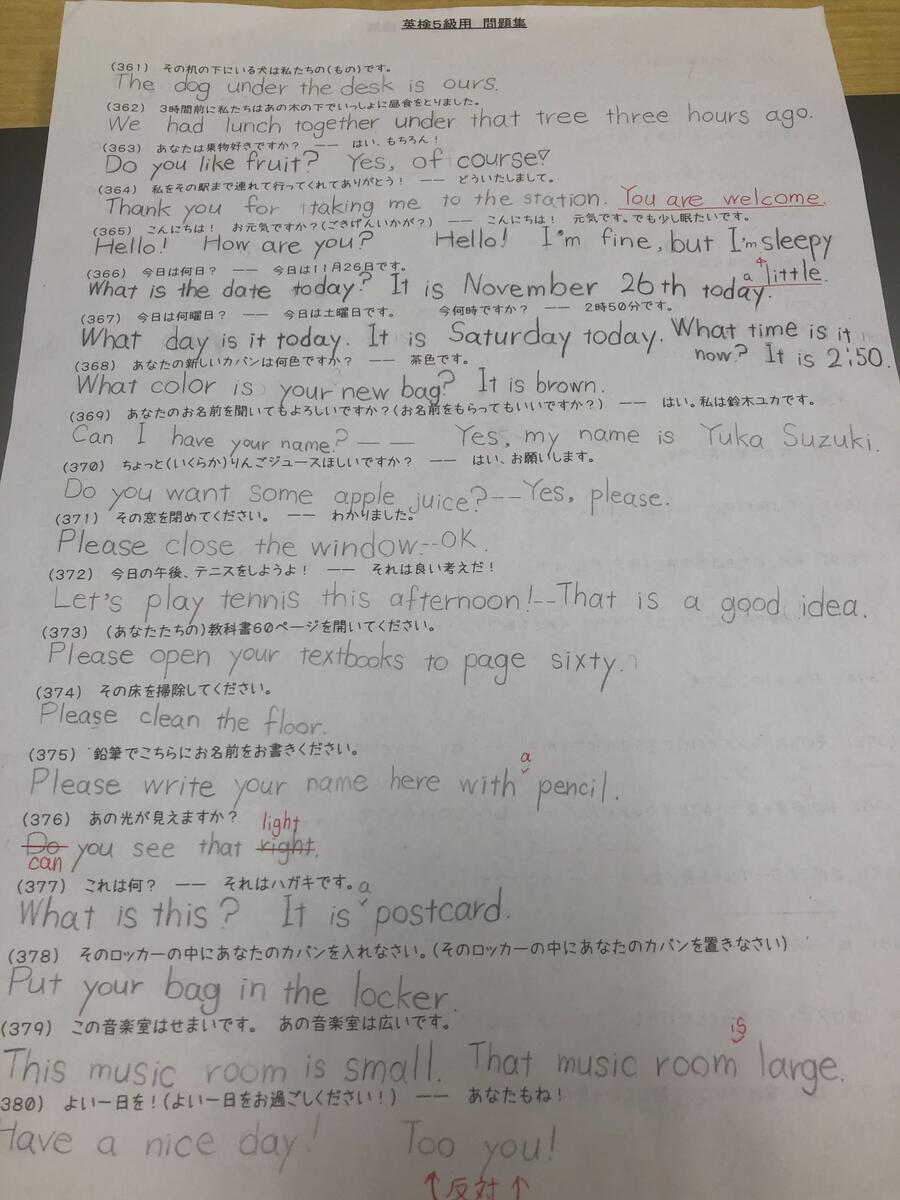 英検5級用 問題集
(361) その机の下にいる犬は私たちの(もの)です。
The dog under the desk is ours.
(362) 3時間前に私たちはあの木の下でいっしょに昼食をとりました。
We had lunch together under that tree three hours ago.
(363) あなたは果物好きですか? ―― はい、もちろん!
Do you like fruit? Yes, of course!
(364) 私をその駅まで連れて行ってくれてありがとう! ―― どういたしまして。
Thank you for taking me to the station. You are welcome.
(365) こんにちは! お元気ですか?(ごきげんいかが?) ―― こんにちは! 元気です。でも少し眠たいです。
Hello! How are you? Hello! I'm fine, but I'm sleepy
a little.
(366) 今日は何日? ―― 今日は11月26日です。
What is the date today? It is November 26th today.
(367) 今日は何曜日? ―― 今日は土曜日です。 今何時ですか? ―― 2時50分です。
What day is it today. It is Saturday today. What time is it
now? It is 2:50.
(368) あなたの新しいカバンは何色ですか? ―― 茶色です。
What color is your new bag? It is brown.
(369) あなたのお名前を聞いてもよろしいですか?(お名前をもらってもいいですか?) ―― はい。私は鈴木ユカです。
Can I have your name? ―― Yes, my name is Yuka Suzuki.
(370) ちょっと(いくらか)りんごジュースほしいですか? ―― はい、お願いします。
Do you want some apple juice? -- Yes, please.
(371) その窓を閉めてください。 ―― わかりました。
Please close the window. -- OK.
(372) 今日の午後、テニスをしようよ! ―― それは良い考えだ!
Let's play tennis this afternoon! -- That is a good idea.
(373) (あなたたちの)教科書60ページを開いてください。
Please open your textbooks to page sixty.
(374) その床を掃除してください。
Please clean the floor.
(375) 鉛筆でこちらにお名前をお書きください。
a
Please write your name here with pencil.
(376) あの光が見えますか?
light
Do you see that right.
can
(377) これは何? ―― それはハガキです。
a
What is this? It is postcard.
(378) そのロッカーの中にあなたのカバンを入れなさい。(そのロッカーの中にあなたのカバンを置きなさい)
Put your bag in the locker.
(379) この音楽室はせまいです。 あの音楽室は広いです。
is
This music room is small. That music room large.
380) よい一日を!(よい一日をお過ごしください!) ―― あなたもね!
Have a nice day! Too you!
↑反対↑